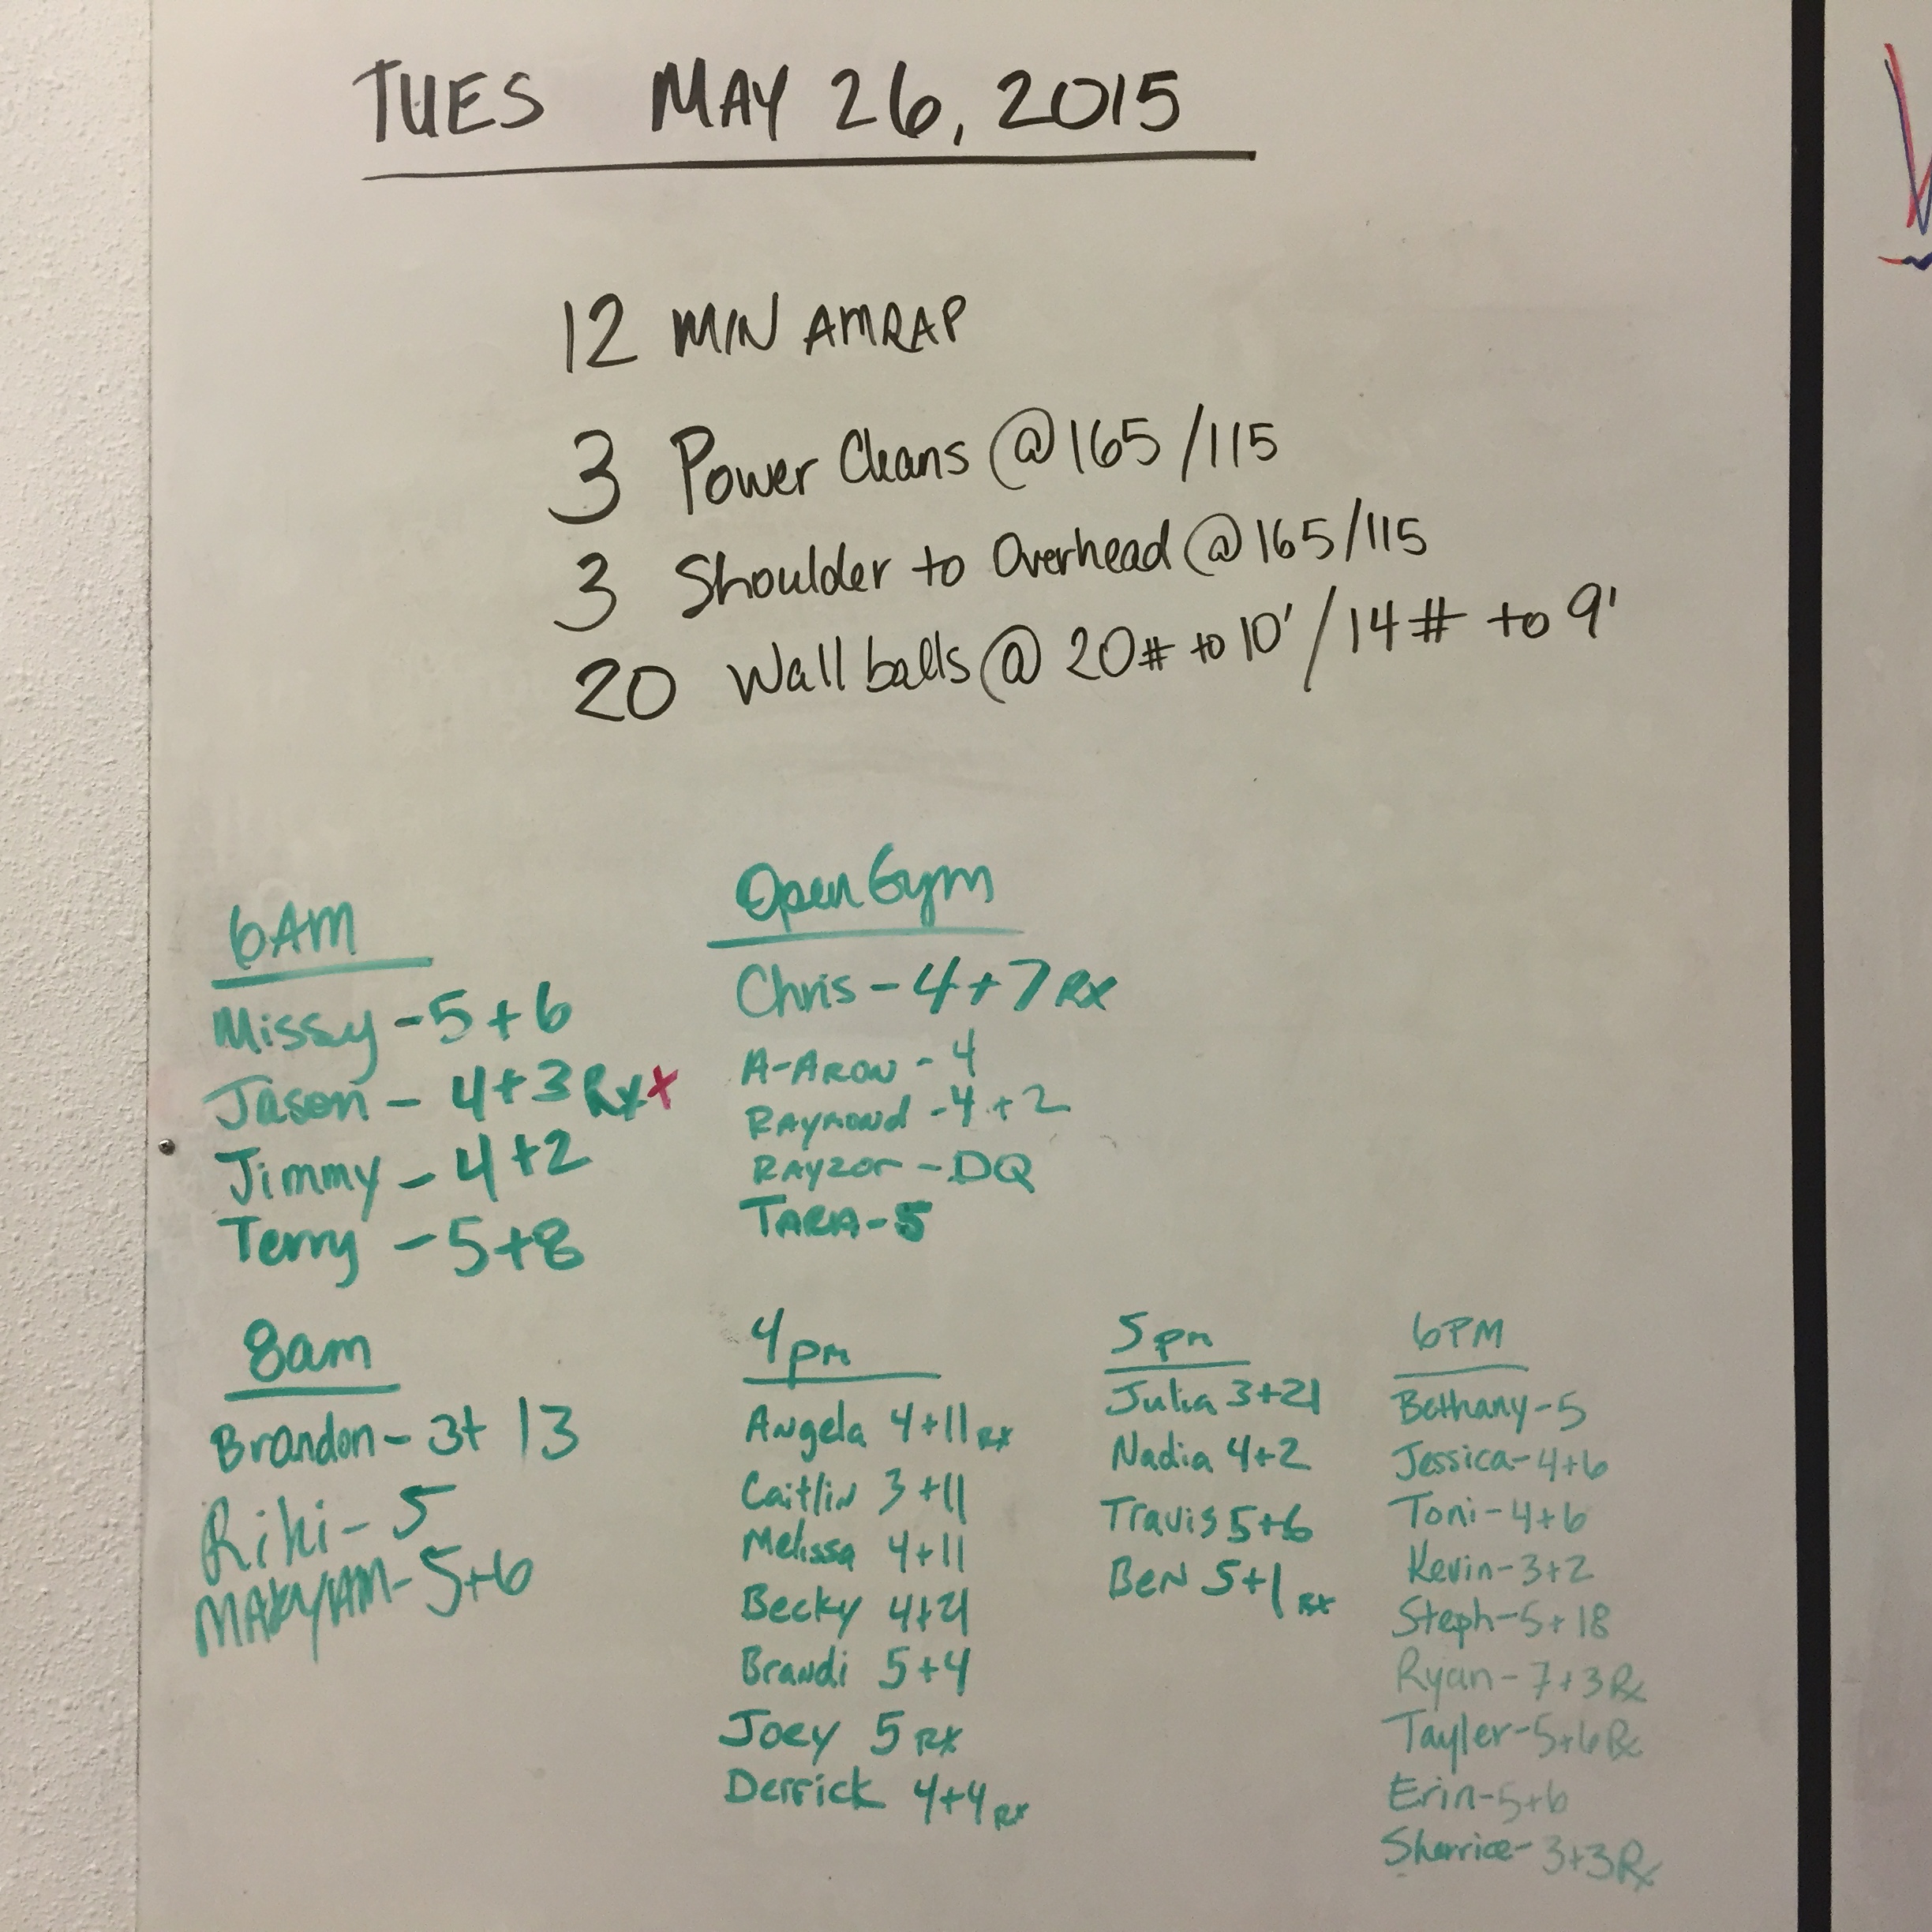 TUES MAY 26, 2015
12 MIN AMRAP
3 Power Cleans @ 165/115
3 Shoulder to Overhead @ 165/115
20 Wall balls @ 20# to 10' / 14# to 9'
6AM
Missy - 5+6
Jason - 4+3 Rx+
Jimmy - 4+2
Terry - 5+8
Open Gym
Chris - 4+7 Rx
A-ARON - 4
RAYMOND - 4+2
RAYZOR - DQ
TARA - 5
8am
Brandon - 3+13
Riki - 5
MARYAM - 5+6
4pm
Angela 4+11 Rx
Caitlin 3+11
Melissa 4+11
Becky 4+21
Brandi 5+4
Joey 5 Rx
Derrick 4+4 Rx
5pm
Julia 3+21
Nadia 4+2
Travis 5+6
BEN 5+1 Rx
6PM
Bethany - 5
Jessica - 4+6
Toni - 4+6
Kevin - 3+2
Steph - 5+18
Ryan - 7+3 Rx
Tayler - 5+6 Rx
Erin - 5+6
Sherrice - 3+3 Rx